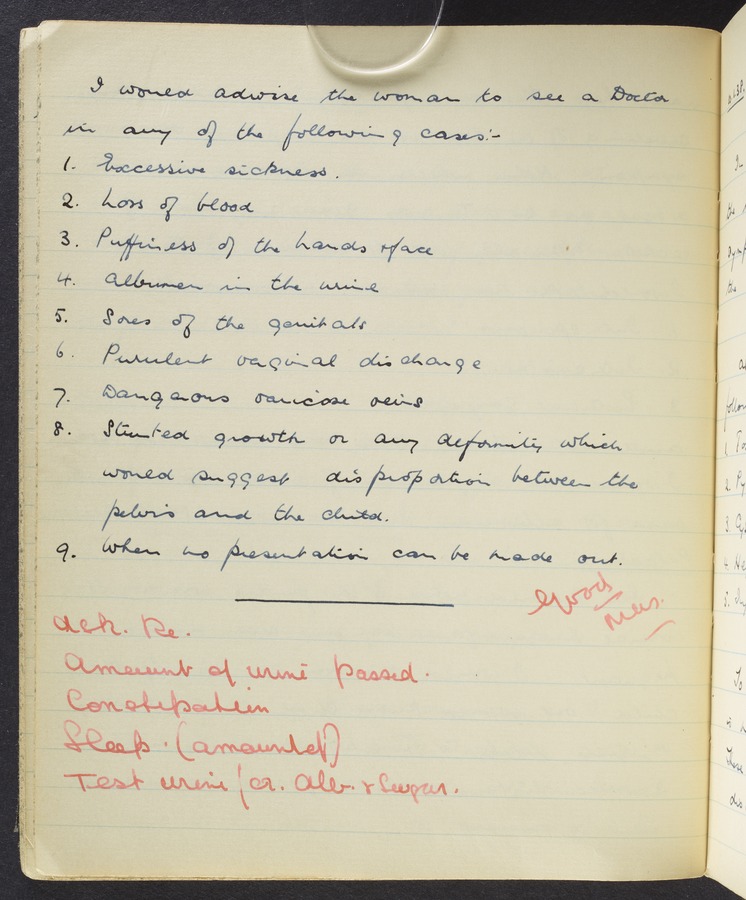 I would advise the woman to see a Doctor
in any of the following cases:-
1. Excessive sickness.
2. Loss of blood
3. Puffiness of the hands & face
4. Albumen in the urine
5. Sores of the genitals
6. Purulent vaginal discharge
7. Dangerous varicose veins
8. Stunted growth or any deformity which
would suggest disproportion between the
pelvis and the child.
9. When no presentation can be made out.
Good
Ask. Re.
Amount of urine passed.
Constipation
Sleep. (amount of)
Test urine for. Alb. & Sugar.